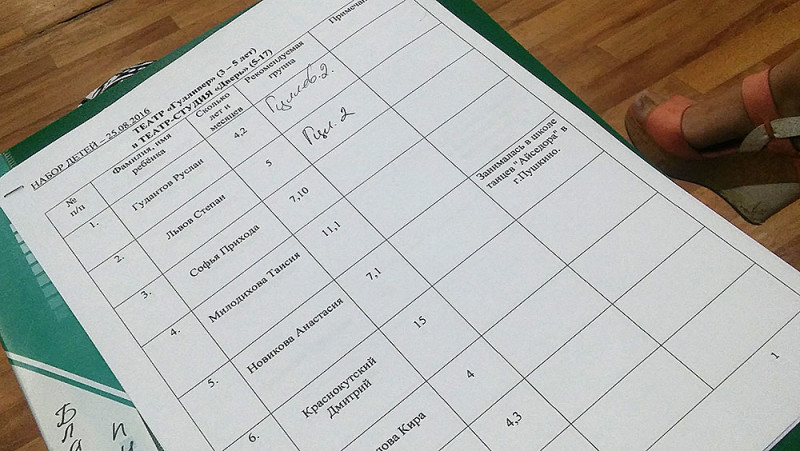 НАБОР ДЕТЕЙ – 25.08.2016
ТЕАТР «Гулливер» (3 – 5 лет)
и ТЕАТР-СТУДИЯ «Дверь» (5-17)
№
п/п
Фамилия, имя
ребёнка
Сколько
лет и
месяцев
Рекомендуемая
группа
Примечан
1.
Гудантов Руслан
4,2
Гуллив. 2.
2.
Львов Степан
5
Гул. 2
3.
Софья Прихода
7,10
4.
Милодихова Таисия
11,1
Занималась в школе
танцев "Айседора" в
г.Пушкино.
5.
Новикова Анастасия
7,1
6.
Краснокутский
Дмитрий
15
лова Кира
4
4,3
1